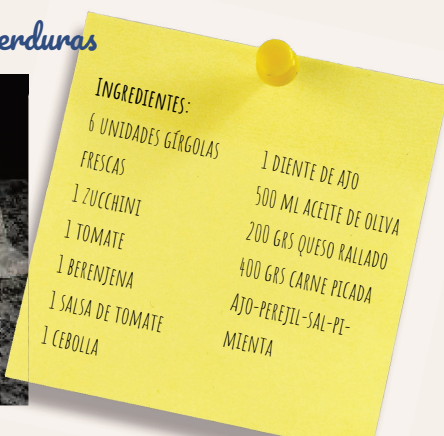 erduras
INGREDIENTES:
6 UNIDADES GÍRGOLAS
FRESCAS
1 ZUCCHINI
1 TOMATE
1 BERENJENA
1 SALSA DE TOMATE
1 CEBOLLA
1 DIENTE DE AJO
500 ML ACEITE DE OLIVA
200 GRS QUESO RALLADO
400 GRS CARNE PICADA
AJO-PEREJIL-SAL-PI-
MIENTA